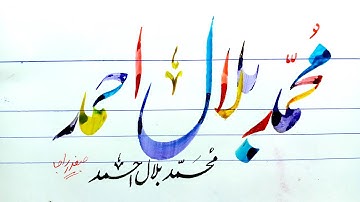 مُحمّد بلال احمد
مُحَمّد بلال احمد
صفدر راجا